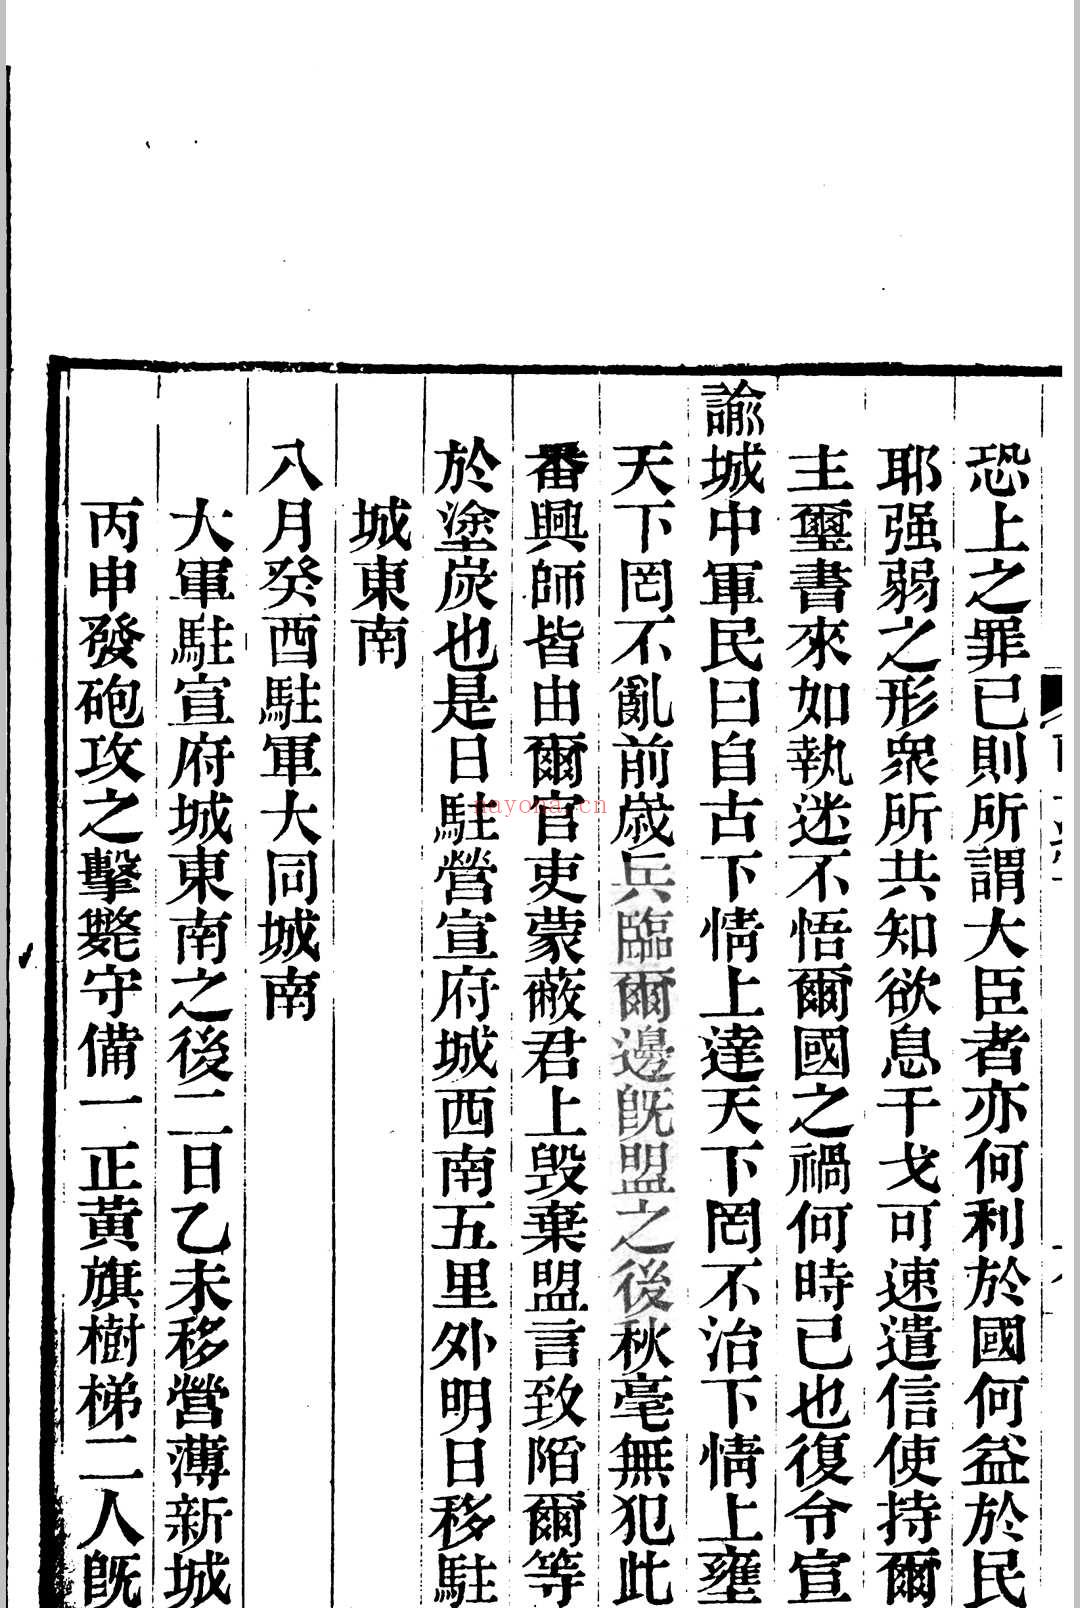 恐上之罪已則所謂大臣者亦何利於國何益於民
耶强弱之形衆所共知欲息干戈可速遣信使持爾
主璽書來如執迷不悟爾國之禍何時已也復令宣
諭城中軍民曰自古下情上達天下罔不治下情上壅
天下罔不亂前歲兵臨爾邊旣盟之後秋毫無犯此
番興師皆由爾官吏蒙蔽君上毀棄盟言致陷爾等
於塗炭也是日駐營宣府城西南五里外明日移駐
城東南
八月癸酉駐軍大同城南
大軍駐宣府城東南之後二日乙未移營薄新城
丙申發砲攻之擊斃守備一正黃旗樹梯二人旣
nayona.cn